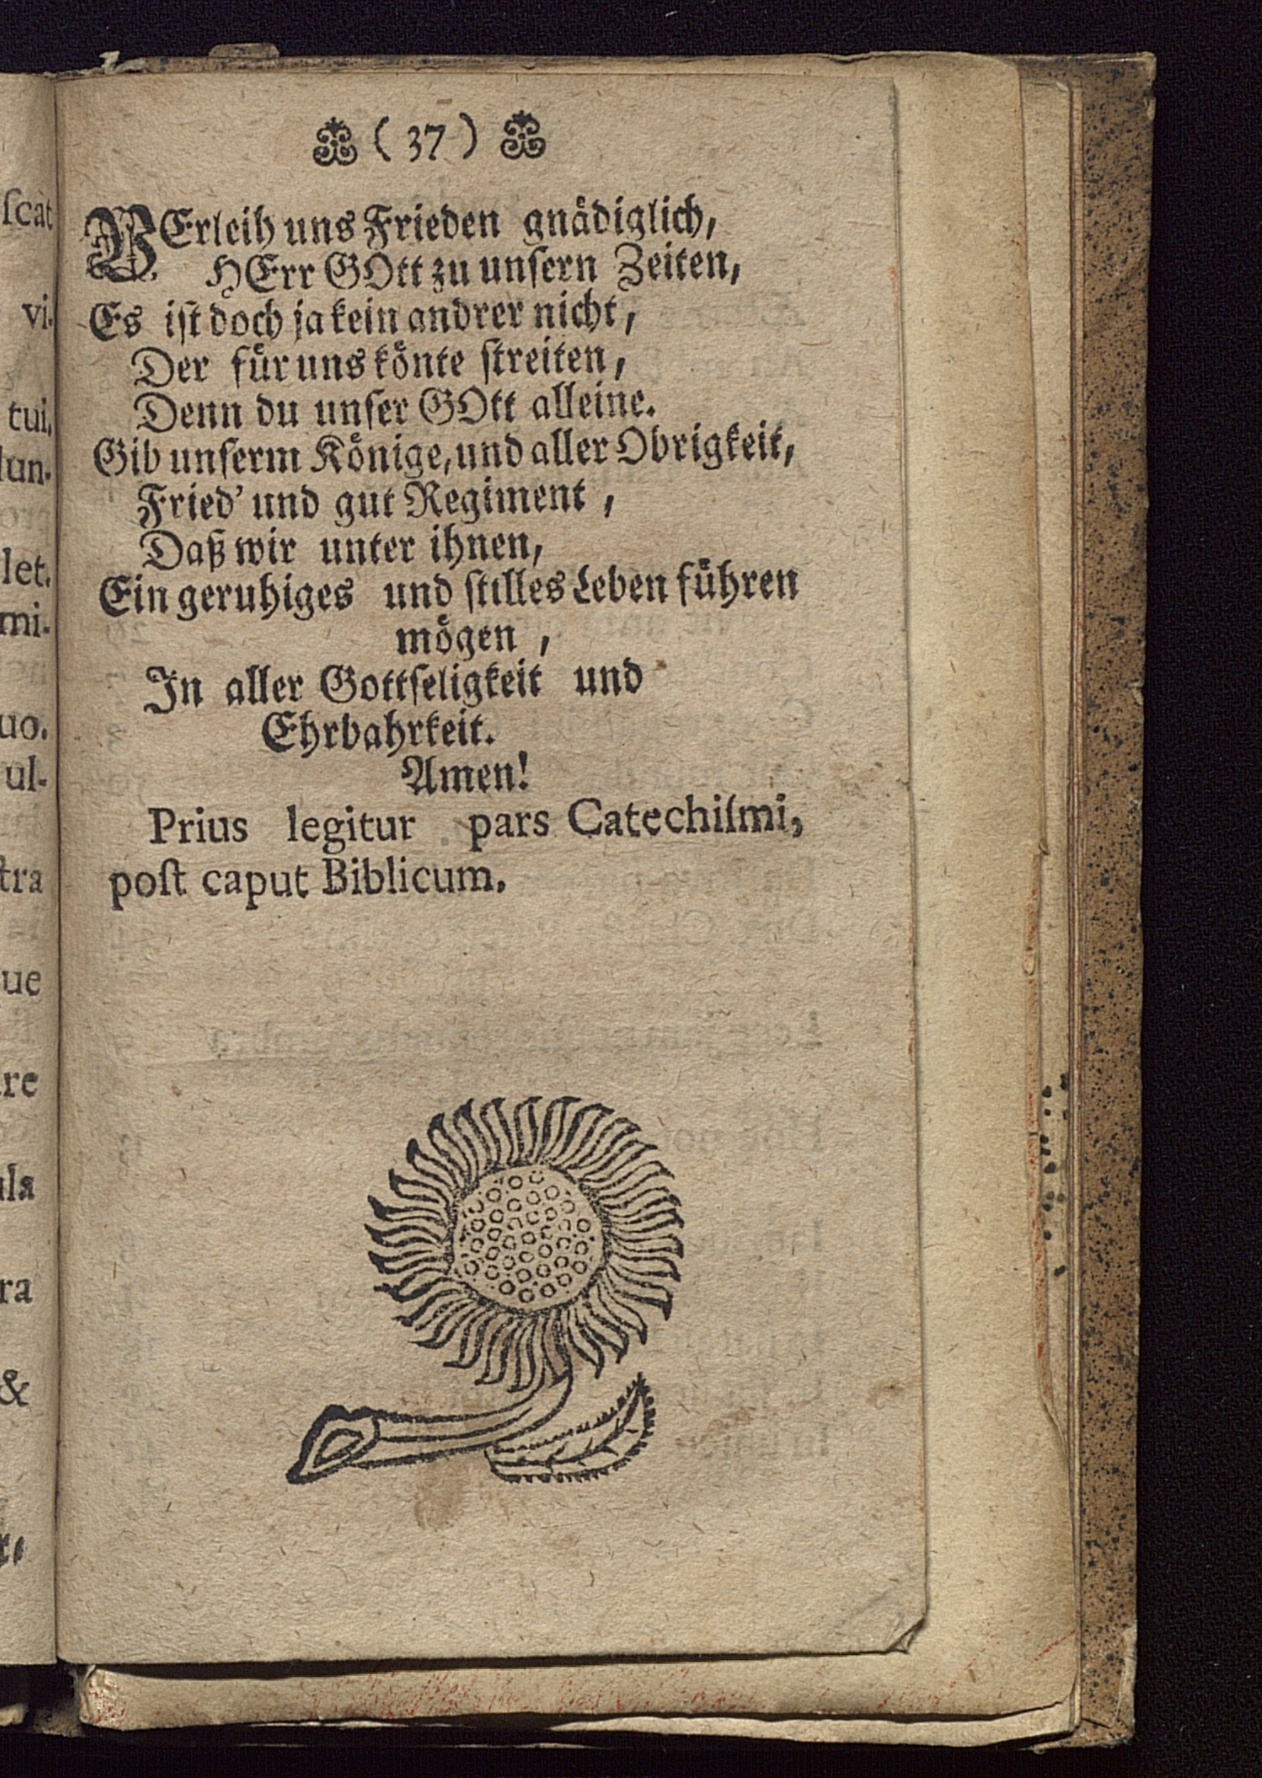 ( 37 )
VErleih uns Frieden gnädiglich,
HErr GOtt zu unſern Zeiten,
Es iſt doch ja kein andrer nicht,
Der für uns könte ſtreiten,
Denn du unſer GOtt alleine.
Gib unſerm Könige, und aller Obrigkeit,
Fried' und gut Regiment,
Daß wir unter ihnen,
Ein geruhiges und ſtilles Leben führen
mögen,
In aller Gottſeligkeit und
Ehrbahrkeit.
Amen!
Prius legitur pars Catechiſmi,
poſt caput Biblicum.
ſcat
vi.
tui,
lun-
let.
mi-
uo.
ul-
ſtra
ue
re
ula
ra
&